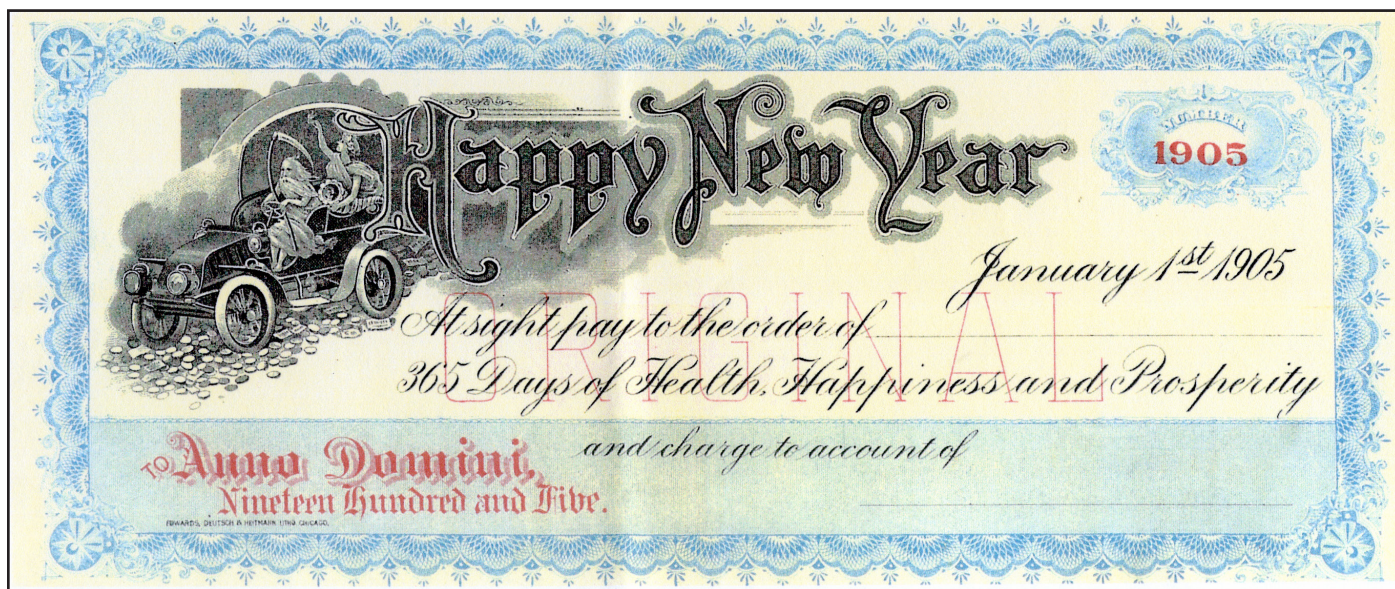 Happy New Year
VOUCHER
1905
January 1st 1905
At sight pay to the order of
ORIGINAL
365 Days of Health, Happiness and Prosperity
and charge to account of
TO Anno Domini,
Nineteen Hundred and Five.
EDWARDS, DEUTSCH & HEITMANN LITHO. CHICAGO.